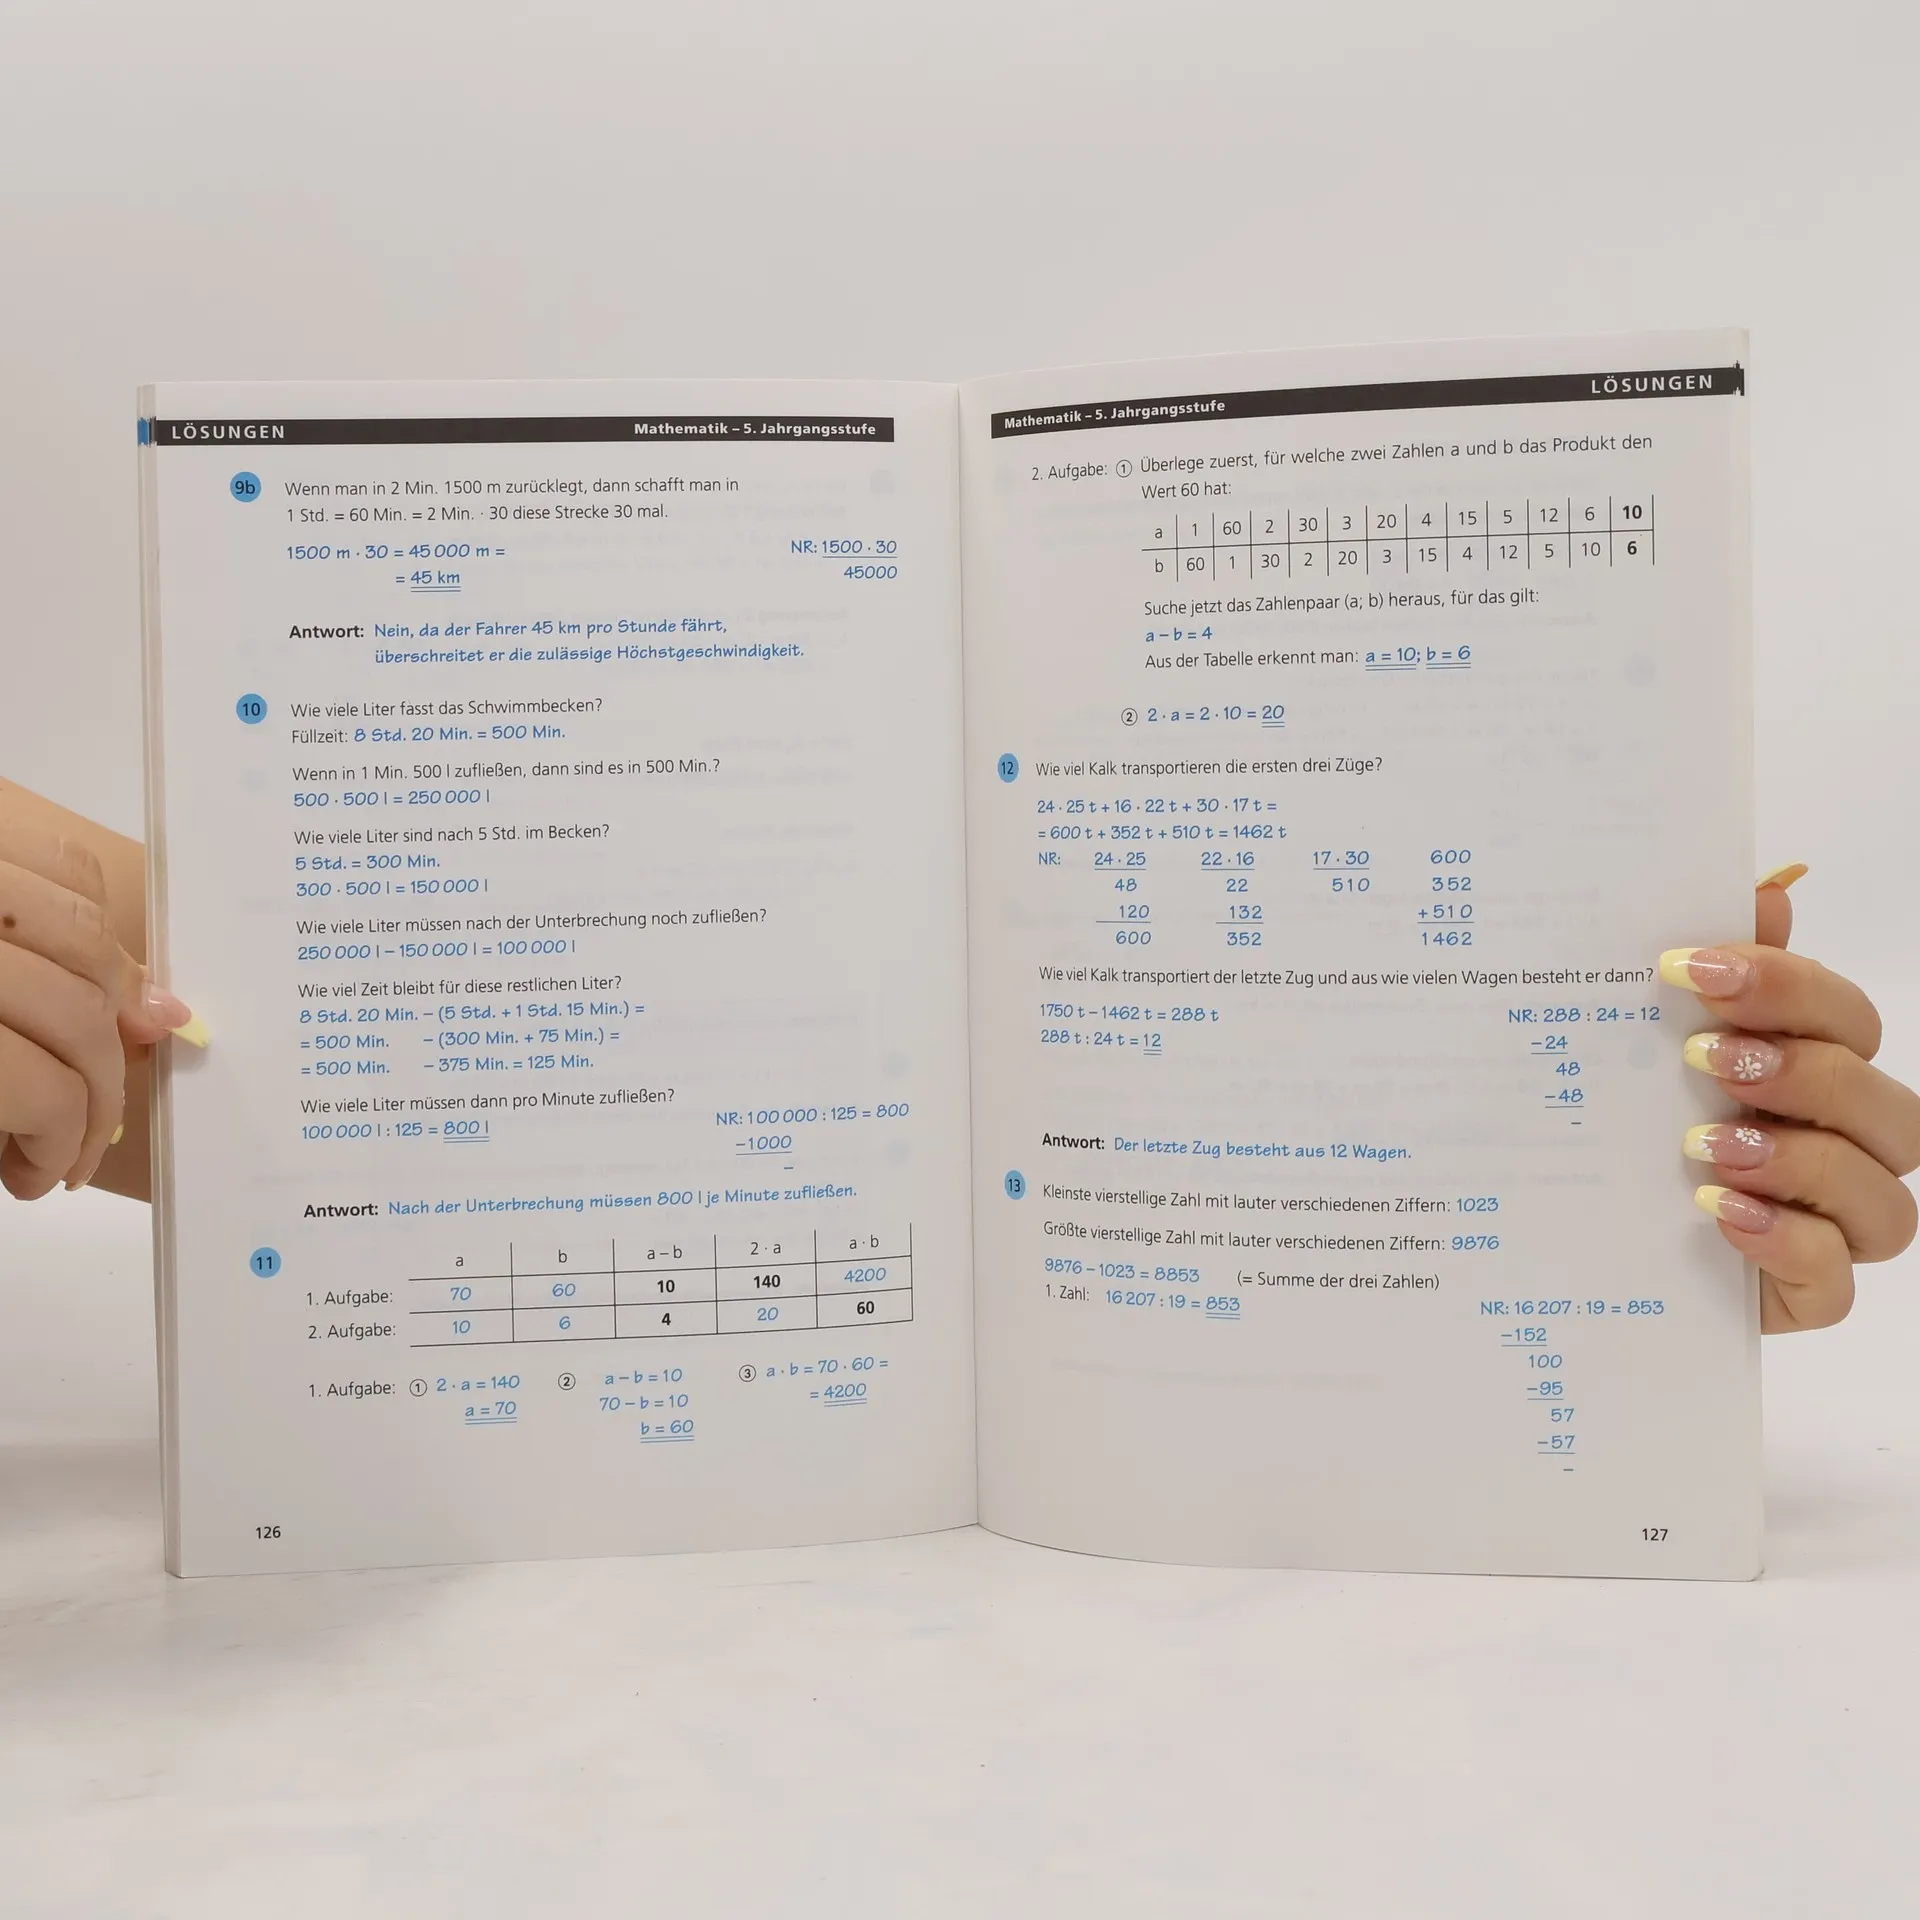 LÖSUNGEN
Mathematik – 5. Jahrgangsstufe
9b
Wenn man in 2 Min. 1500 m zurücklegt, dann schafft man in
1 Std. = 60 Min. = 2 Min. · 30 diese Strecke 30 mal.
1500 m · 30 = 45 000 m =
= 45 km
NR: 1500 · 30
45000
Antwort: Nein, da der Fahrer 45 km pro Stunde fährt,
überschreitet er die zulässige Höchstgeschwindigkeit.
10
Wie viele Liter fasst das Schwimmbecken?
Füllzeit: 8 Std. 20 Min. = 500 Min.
Wenn in 1 Min. 500 l zufließen, dann sind es in 500 Min.?
500 · 500 l = 250 000 l
Wie viele Liter sind nach 5 Std. im Becken?
5 Std. = 300 Min.
300 · 500 l = 150 000 l
Wie viele Liter müssen nach der Unterbrechung noch zufließen?
250 000 l – 150 000 l = 100 000 l
Wie viel Zeit bleibt für diese restlichen Liter?
8 Std. 20 Min. – (5 Std. + 1 Std. 15 Min.) =
= 500 Min. – (300 Min. + 75 Min.) =
= 500 Min. – 375 Min. = 125 Min.
Wie viele Liter müssen dann pro Minute zufließen?
100 000 l : 125 = 800 l
NR: 100 000 : 125 = 800
–1000
–
Antwort: Nach der Unterbrechung müssen 800 l je Minute zufließen.
11
a b a – b 2 · a a · b
1. Aufgabe: 70 60 10 140 4200
2. Aufgabe: 10 6 4 20 60
1. Aufgabe: ① 2 · a = 140 ② a – b = 10 ③ a · b = 70 · 60 =
a = 70 70 – b = 10 = 4200
b = 60
126
Mathematik – 5. Jahrgangsstufe
LÖSUNGEN
2. Aufgabe: ① Überlege zuerst, für welche zwei Zahlen a und b das Produkt den
Wert 60 hat:
a 1 60 2 30 3 20 4 15 5 12 6 10
b 60 1 30 2 20 3 15 4 12 5 10 6
Suche jetzt das Zahlenpaar (a; b) heraus, für das gilt:
a – b = 4
Aus der Tabelle erkennt man: a = 10; b = 6
② 2 · a = 2 · 10 = 20
12
Wie viel Kalk transportieren die ersten drei Züge?
24 · 25 t + 16 · 22 t + 30 · 17 t =
= 600 t + 352 t + 510 t = 1462 t
NR: 24 · 25 22 · 16 17 · 30 600
48 22 510 352
120 132 + 510
600 352 1462
Wie viel Kalk transportiert der letzte Zug und aus wie vielen Wagen besteht er dann?
1750 t – 1462 t = 288 t
288 t : 24 t = 12
NR: 288 : 24 = 12
–24
48
–48
–
Antwort: Der letzte Zug besteht aus 12 Wagen.
13
Kleinste vierstellige Zahl mit lauter verschiedenen Ziffern: 1023
Größte vierstellige Zahl mit lauter verschiedenen Ziffern: 9876
9876 – 1023 = 8853 (= Summe der drei Zahlen)
1. Zahl: 16 207 : 19 = 853
NR: 16 207 : 19 = 853
–152
100
–95
57
–57
–
127